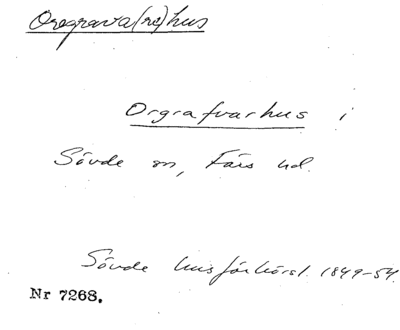 Oregrava(re)hus
Orgrafvarhus i
Sövde sn, Färs hd.
Sövde husförhörsl. 1849-54.
Nr 7268.